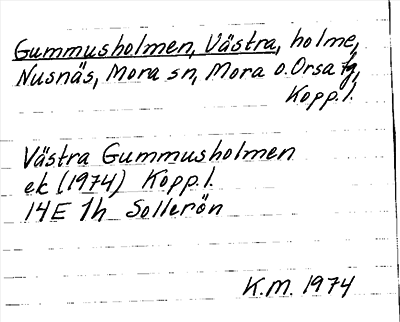 Gummusholmen, Västra, holme,
Nusnäs, Mora sn, Mora o. Orsa fg,
Kopp. l.
Västra Gummusholmen
ek (1974) Kopp. l.
14E 1h Sollerön
K.M. 1974